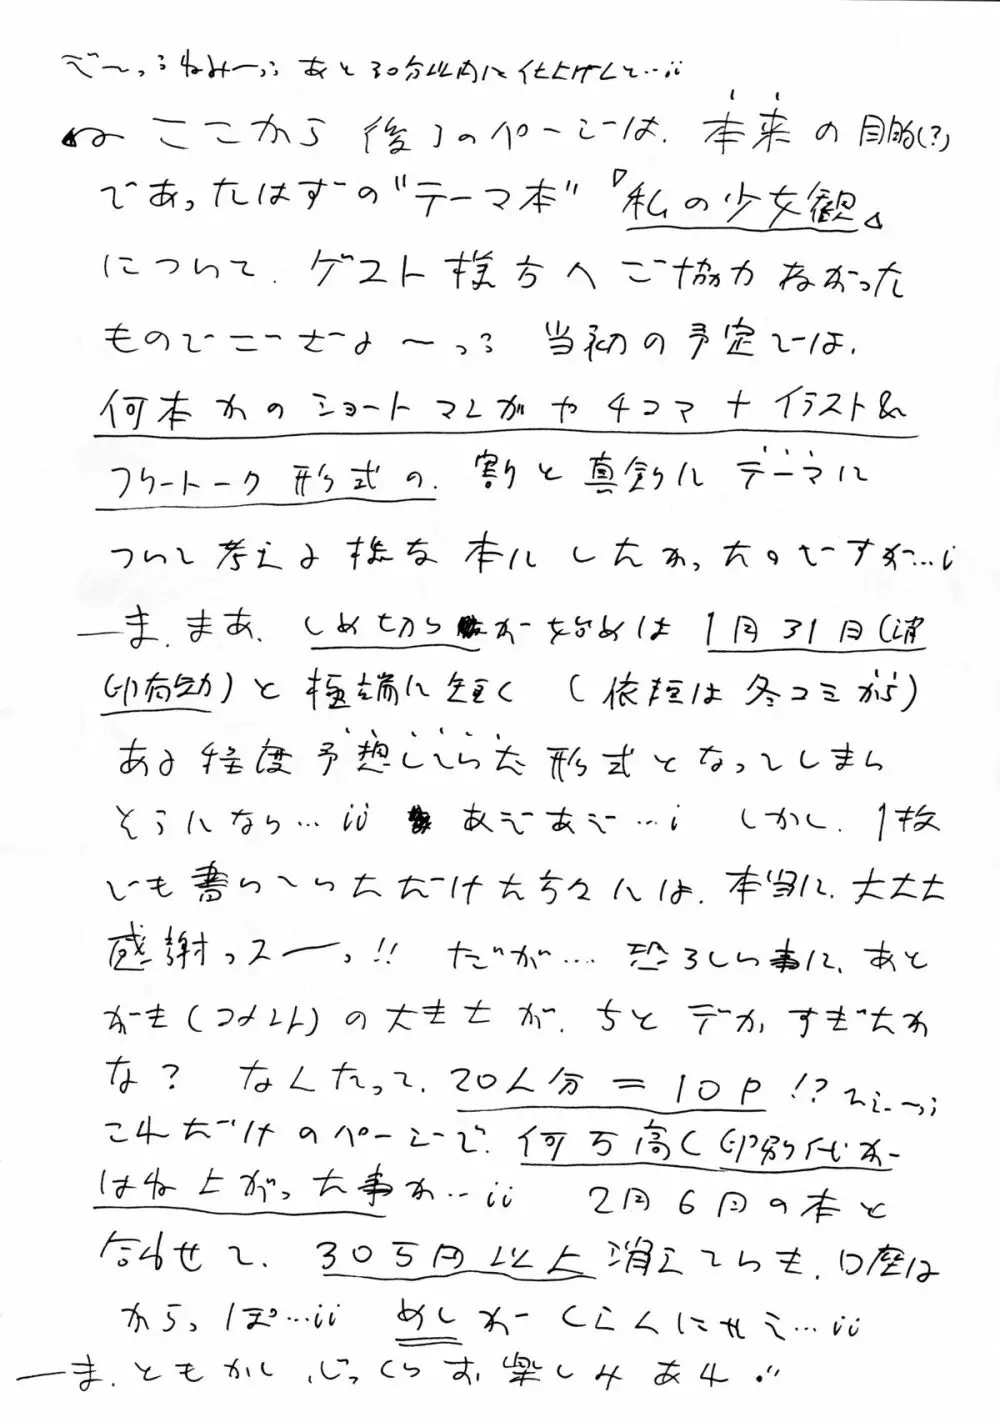 で～っ;ねみーっ;あと30分以内に仕上げしと…ii
ここから後ろのページは、本来の目的(?)
であったはずの"テーマ本"『私の少女観』
について、ゲスト様方へご協力ねがった
ものでございますよ～っ; 当初の予定では、
何本かのショートマンガや4コマ+イラスト&
フリートーク形式の、割と真剣にテーマに
ついて考える様な本にしたかったのですが…i
ーま、まあ、しめ切りが始めは1月31日(消
印有効)と極端に短く(依頼は冬コミから)
ある程度予想していた形式となってしまい
そうになり…ii あせあせ…i しかし、1枚
でも書いていただけた方々には、本当に、大大大
感謝っスーっ!! だが…恐ろしい事に、あと
がき(コメント)の大きさが、ちとデカすぎたか
な? なんたって、20人分=10P!?
これだけのページで、何万高く印刷代が
はね上がった事か…ii 2月6日の本と
合わせて、30万円以上消えていも、口座は
からっぽ…ii めしがくえんにせえ…ii
ーま、ともかく、じっくりお楽しみあれ